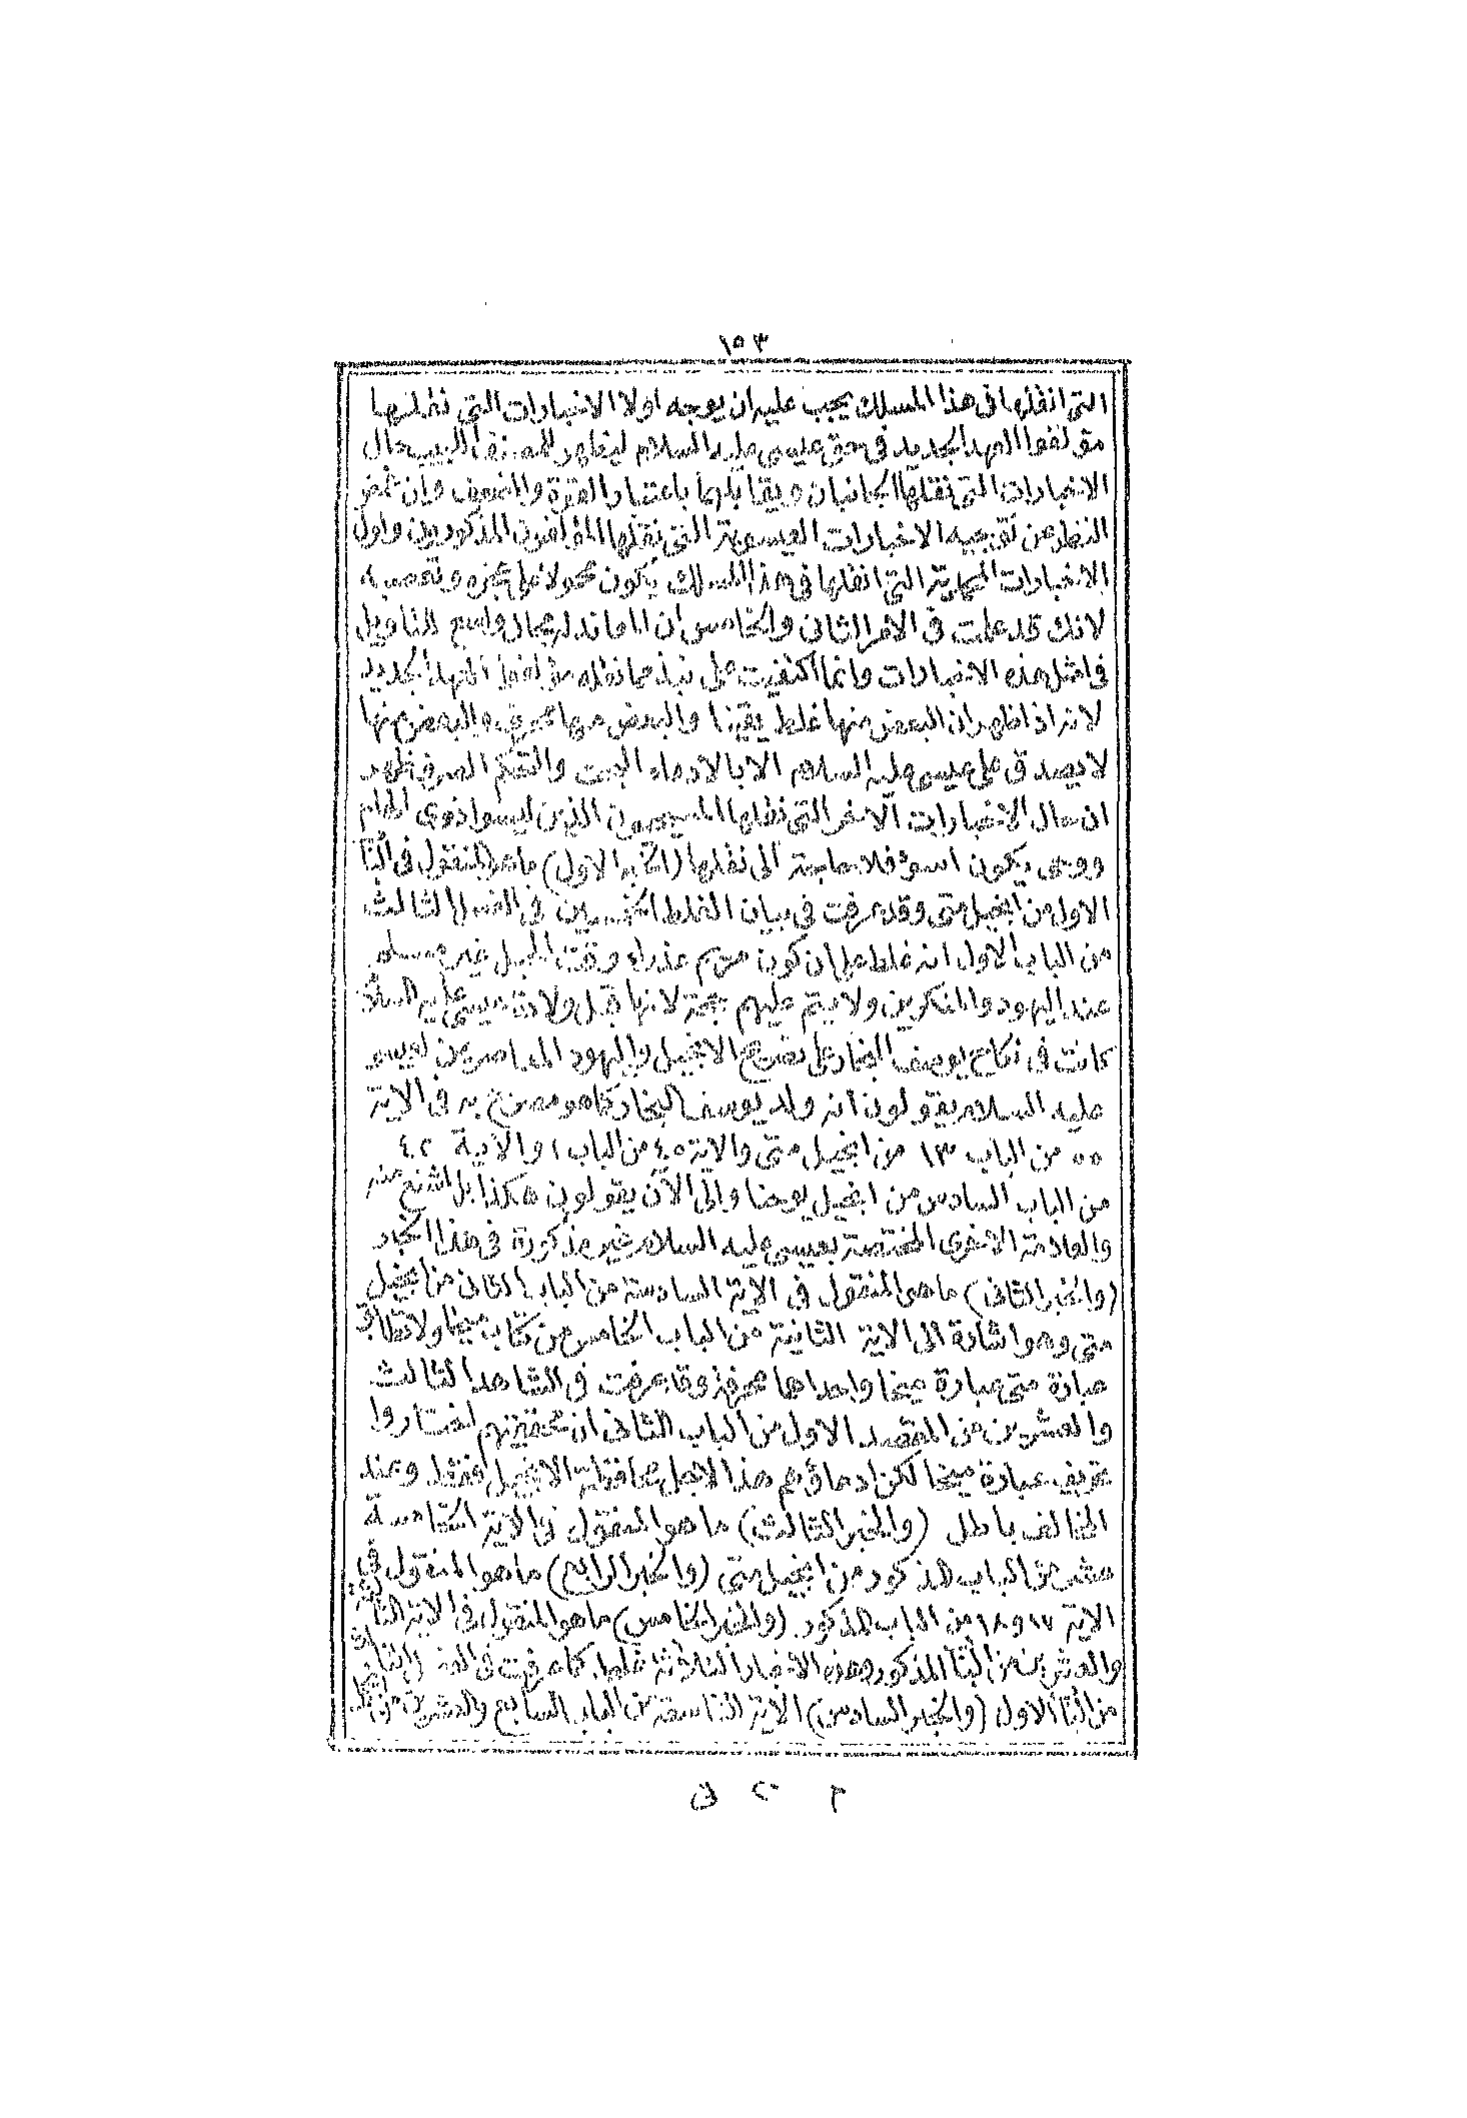 ١٥٣
التى انقلها فى هذا المسلك يجب عليه ان يوجه اولا الاخبارات التى نقلها
مؤلفوا العهد الجديد فى حق عيسى عليه السلام ليظهر للمنصف اللبيب حال
الاخبارات التى نقلها الجانبان ويقابلهما باعتبار القوة والضعف وان غمض
النظر عن توجيه الاخبارات العيسوية التى نقلها المؤلفون المذكورون واول
الاخبارات المحمدية التى انقلها فى هذا المسلك يكون محمولا على عجزه وتعصبه
لانك قد علمت فى الامر الثانى والخامس ان المعاند له مجال واسع للتاويل
فى امثل هذه الاخبارات وانما اكتفيت على نبذ مما نقله مؤلفوا العهد الجديد
لانه اذا ظهر ان البعض منها غلط يقينا والبعض منها محرف والبعض منها
لا يصدق على عيسى عليه السلام الا بالادعاء البحت والتحكم الصرف ظهر
ان حال الاخبارات الاخر التى نقلها المسيحيون الذين ليسوا ذوى الهام
ووحى يكون اسوء فلا حاجة الى نقلها (الخبر الاول) ما هو المنقول فى البا
الاول من انجيل متى وقد عرفت فى بيان الغلط الخمسين فى الفصل الثالث
من الباب الاول انه غلط على ان كون مريم عذراء وقت الحبل غير مسلم
عند اليهود والمنكرين ولا يتم عليهم حجة لانها قبل ولادة عيسى عليه السلام
كانت فى نكاح يوسف النجار على تصريح الانجيل واليهود المعاصرين لعيسى
عليه السلام يقولون انه ولد يوسف النجار كما هو مصرح به فى الاية
٥٥ من الباب ١٣ من انجيل متى والاية ٤٥ من الباب ١ والآية ٤٢
من الباب السادس من انجيل يوحنا والى الآن يقولون هكذا بل اشنع منه
والعلامة الاخرى المختصة بعيسى عليه السلام غير مذكورة فى هذا الخبر
(والخبر الثانى) ما هو المنقول فى الاية السادسة من الباب الثانى من انجيل
متى وهو اشارة الى الاية الثانية من الباب الخامس من كتاب ميخا ولا تطابق
عبارة متى عبارة ميخا واحداهما محرفة وقد عرفت فى الشاهد الثالث
والعشرين من المقصد الاول من الباب الثانى ان محققيهم اختاروا
تحريف عبارة ميخا لكن ادعاؤهم هذا لاجل محافظة الانجيل فقط وعند
المخالف باطل (والخبر الثالث) ما هو المنقول فى الاية الخامسة
عشر من الباب المذكور من انجيل متى (والخبر الرابع) ما هو المنقول فى
الاية ١٧ و١٨ من الباب المذكور (والخبر الخامس) ما هو المنقول فى الاية الثالثة
والعشرين من البا المذكور وهذه الاخبار الثلاثة غلط كما عرفت فى الفصل الثالث
من البا الاول (والخبر السادس) الاية التاسعة من الباب السابع والعشرين من انجيل
م ٢ ق